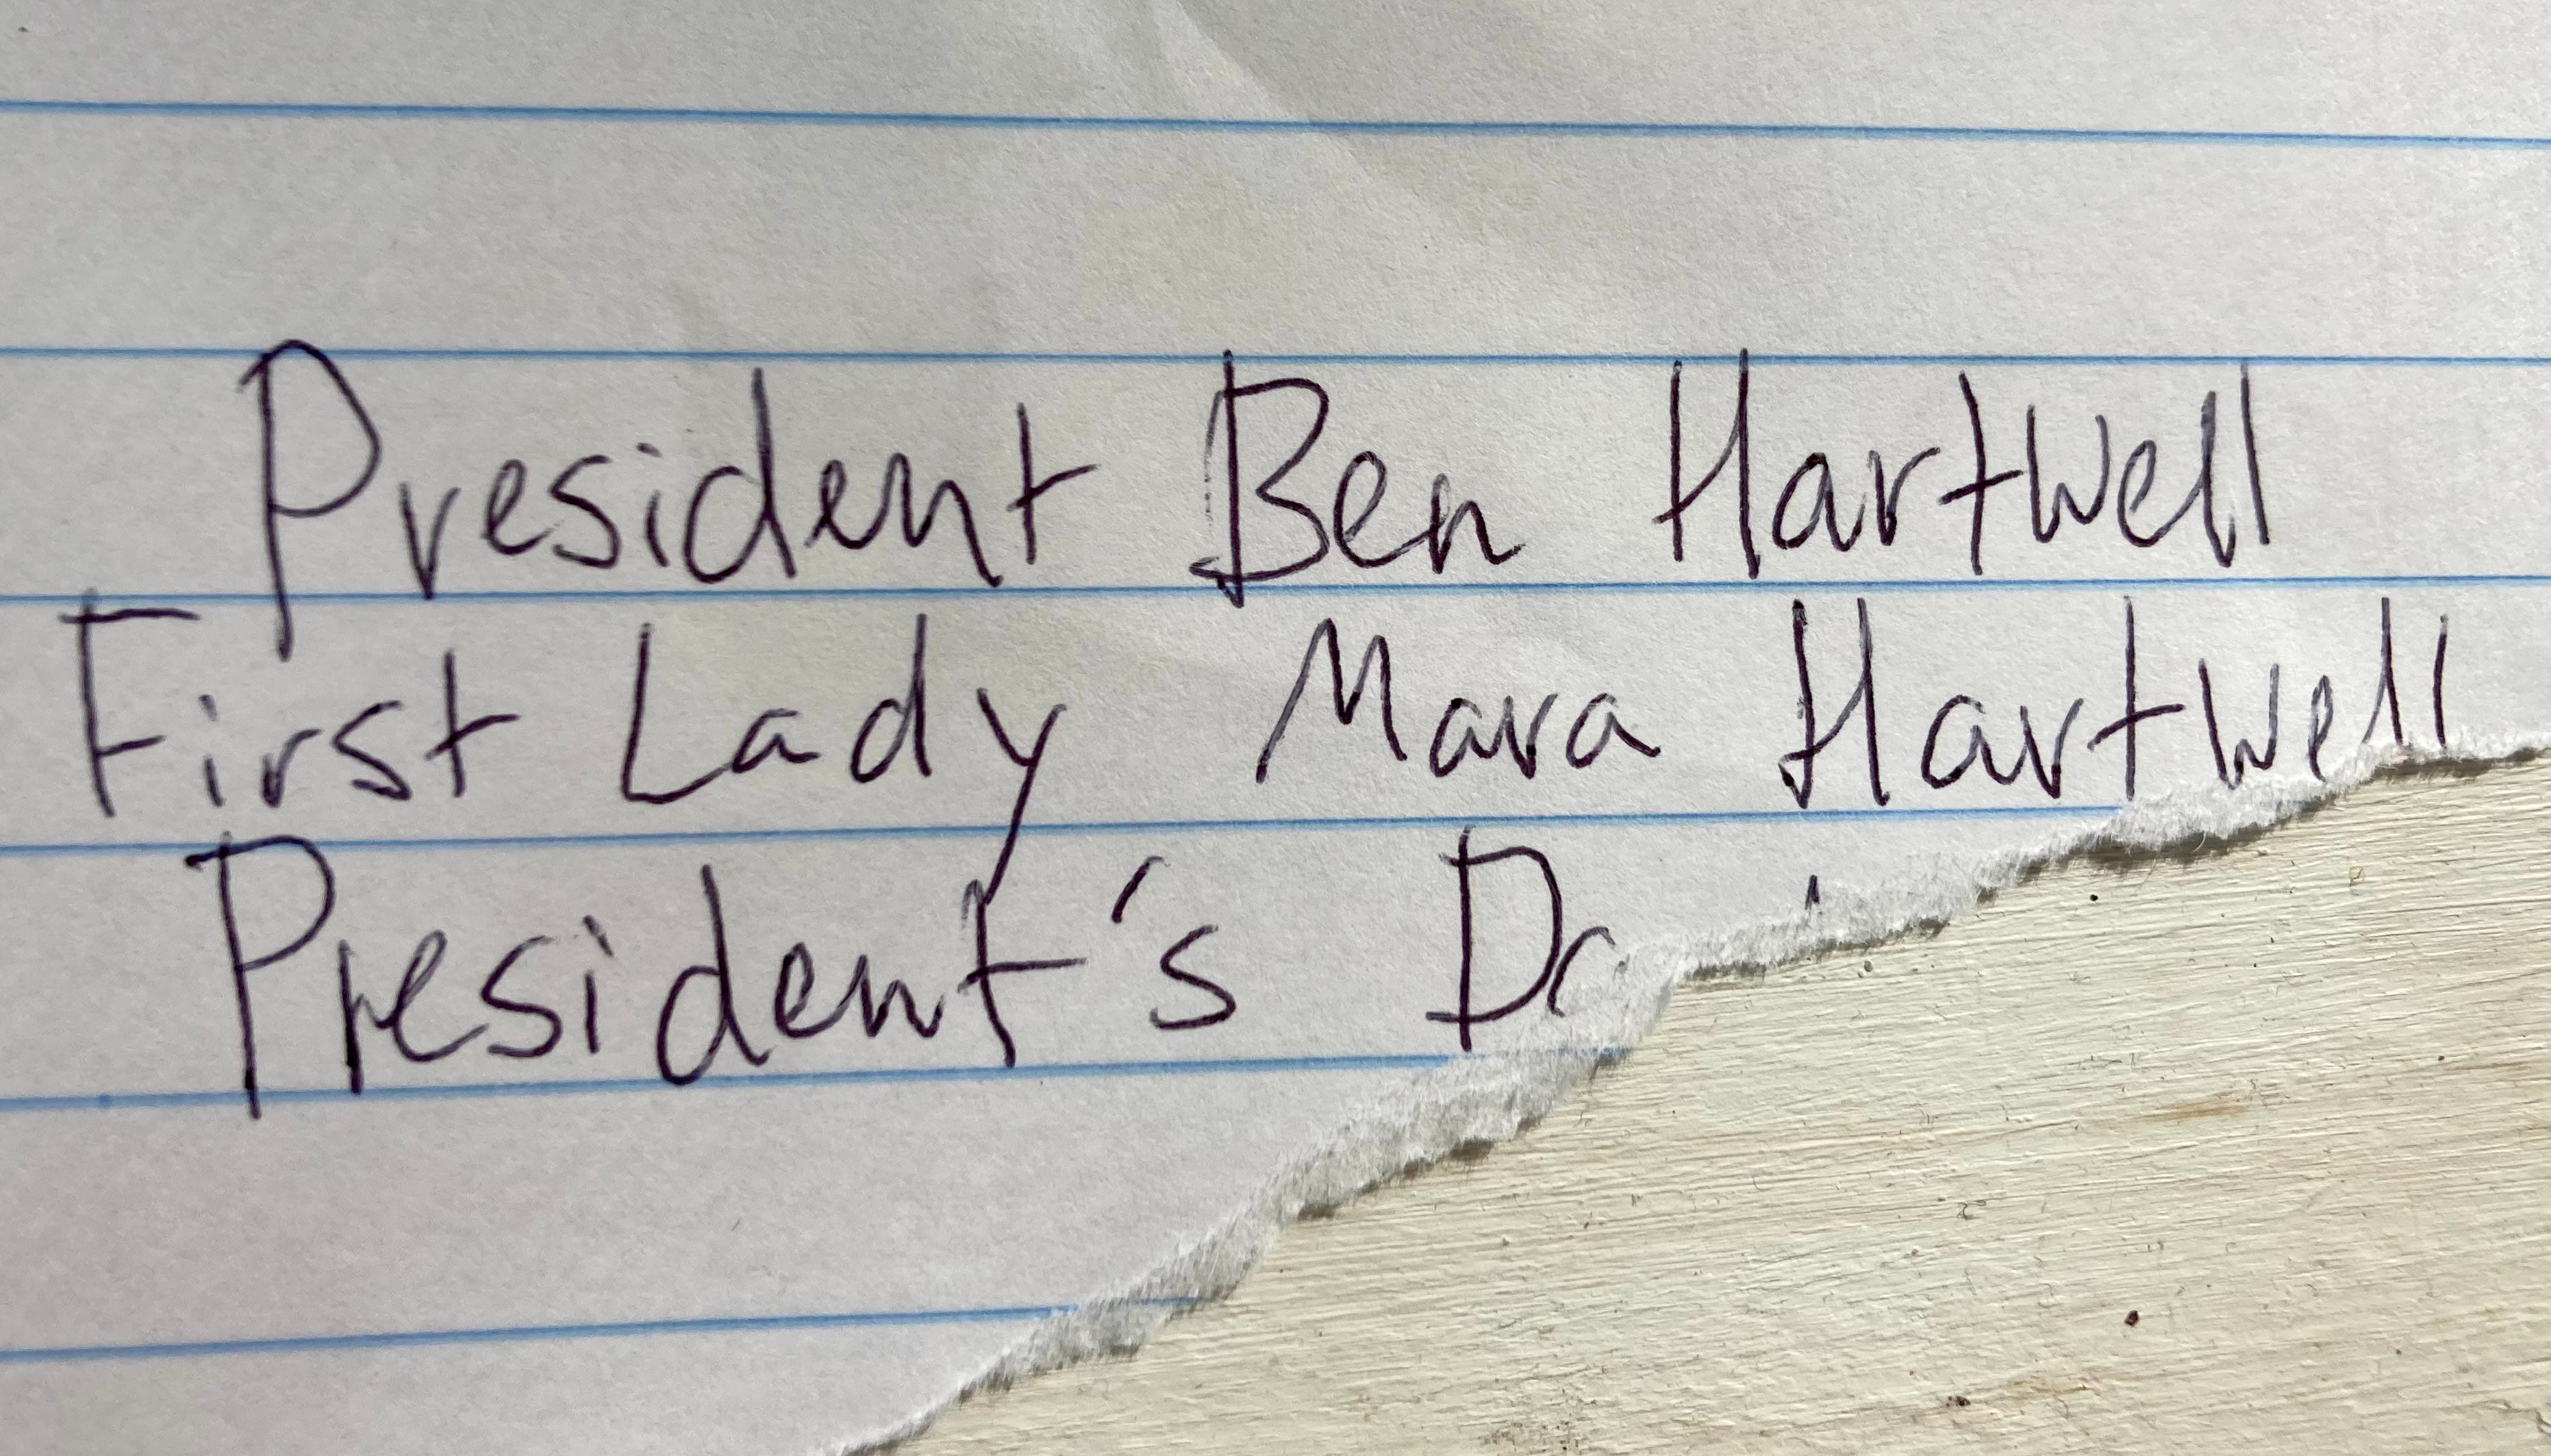 President Ben Hartwell
First Lady Mara Hartwell
President's